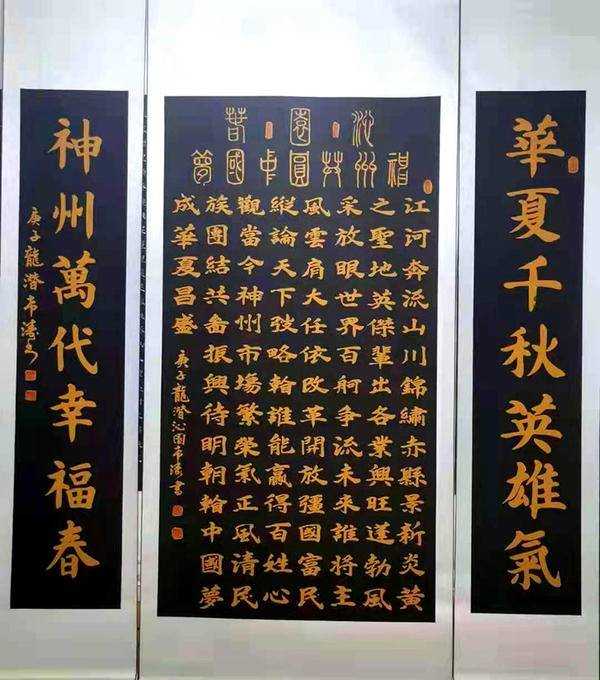 華夏千秋英雄氣
沁園春
神州共圓中國夢
江河奔流山川錦繡赤縣景新炎黃
之聖地英傑輩出各業興旺蓬勃風
采放眼世界百舸爭流未來誰將主
風雲肩大任依改革開放彊國富民
縱論天下弢略輪誰能贏得百姓心
觀當今神州市場繁榮氣正風清民
族團結共啚振興待明朝輪中國夢
成華夏昌盛
庚子龍潛沁園布濤書
神州萬代幸福春
庚子龍潛布濤書